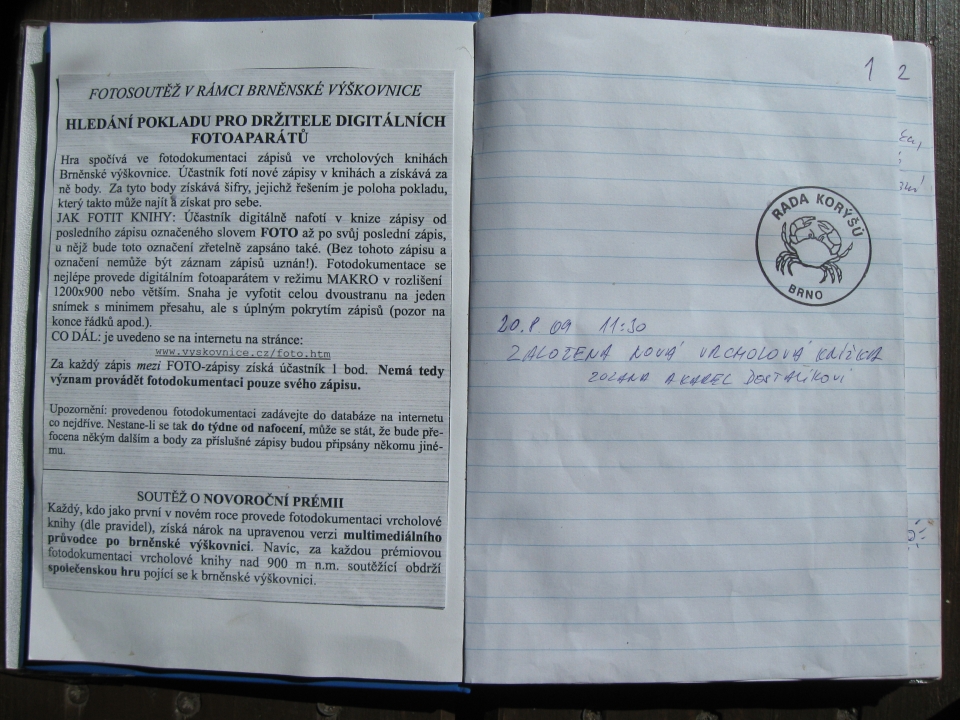 FOTOSOUTĚŽ V RÁMCI BRNĚNSKÉ VÝŠKOVNICE
HLEDÁNÍ POKLADU PRO DRŽITELE DIGITÁLNÍCH
FOTOAPARÁTŮ
Hra spočívá ve fotodokumentaci zápisů ve vrcholových knihách
Brněnské výškovnice. Účastník fotí nové zápisy v knihách a získává za
ně body. Za tyto body získává šifry, jejichž řešením je poloha pokladu,
který takto může najít a získat pro sebe.
JAK FOTIT KNIHY: Účastník digitálně nafotí v knize zápisy od
posledního zápisu označeného slovem FOTO až po svůj poslední zápis,
u nějž bude toto označení zřetelně zapsáno také. (Bez tohoto zápisu a
označení nemůže být záznam zápisů uznán!). Fotodokumentace se
nejlépe provede digitálním fotoaparátem v režimu MAKRO v rozlišení
1200x900 nebo větším. Snaha je vyfotit celou dvoustranu na jeden
snímek s minimem přesahu, ale s úplným pokrytím zápisů (pozor na
konce řádků apod.).
CO DÁL: je uvedeno se na internetu na stránce:
www.vyskovnice.cz/foto.htm
Za každý zápis mezi FOTO-zápisy získá účastník 1 bod. Nemá tedy
význam provádět fotodokumentaci pouze svého zápisu.
Upozornění: provedenou fotodokumentaci zadávejte do databáze na internetu
co nejdříve. Nestane-li se tak do týdne od nafocení, může se stát, že bude pře-
focena někým dalším a body za příslušné zápisy budou připsány někomu jiné-
mu.
SOUTĚŽ O NOVOROČNÍ PRÉMII
Každý, kdo jako první v novém roce provede fotodokumentaci vrcholové
knihy (dle pravidel), získá nárok na upravenou verzi multimediálního
průvodce po brněnské výškovnici. Navíc, za každou prémiovou
fotodokumentaci vrcholové knihy nad 900 m n.m. soutěžící obdrží
společenskou hru pojící se k brněnské výškovnici.
1
2
RADA KORÝŠŮ
BRNO
20.8 09 11:30
ZALOŽENA NOVÁ VRCHOLOVÁ KNÍŽKA
ZOLANA A KAREL DOSTALÍKOVI